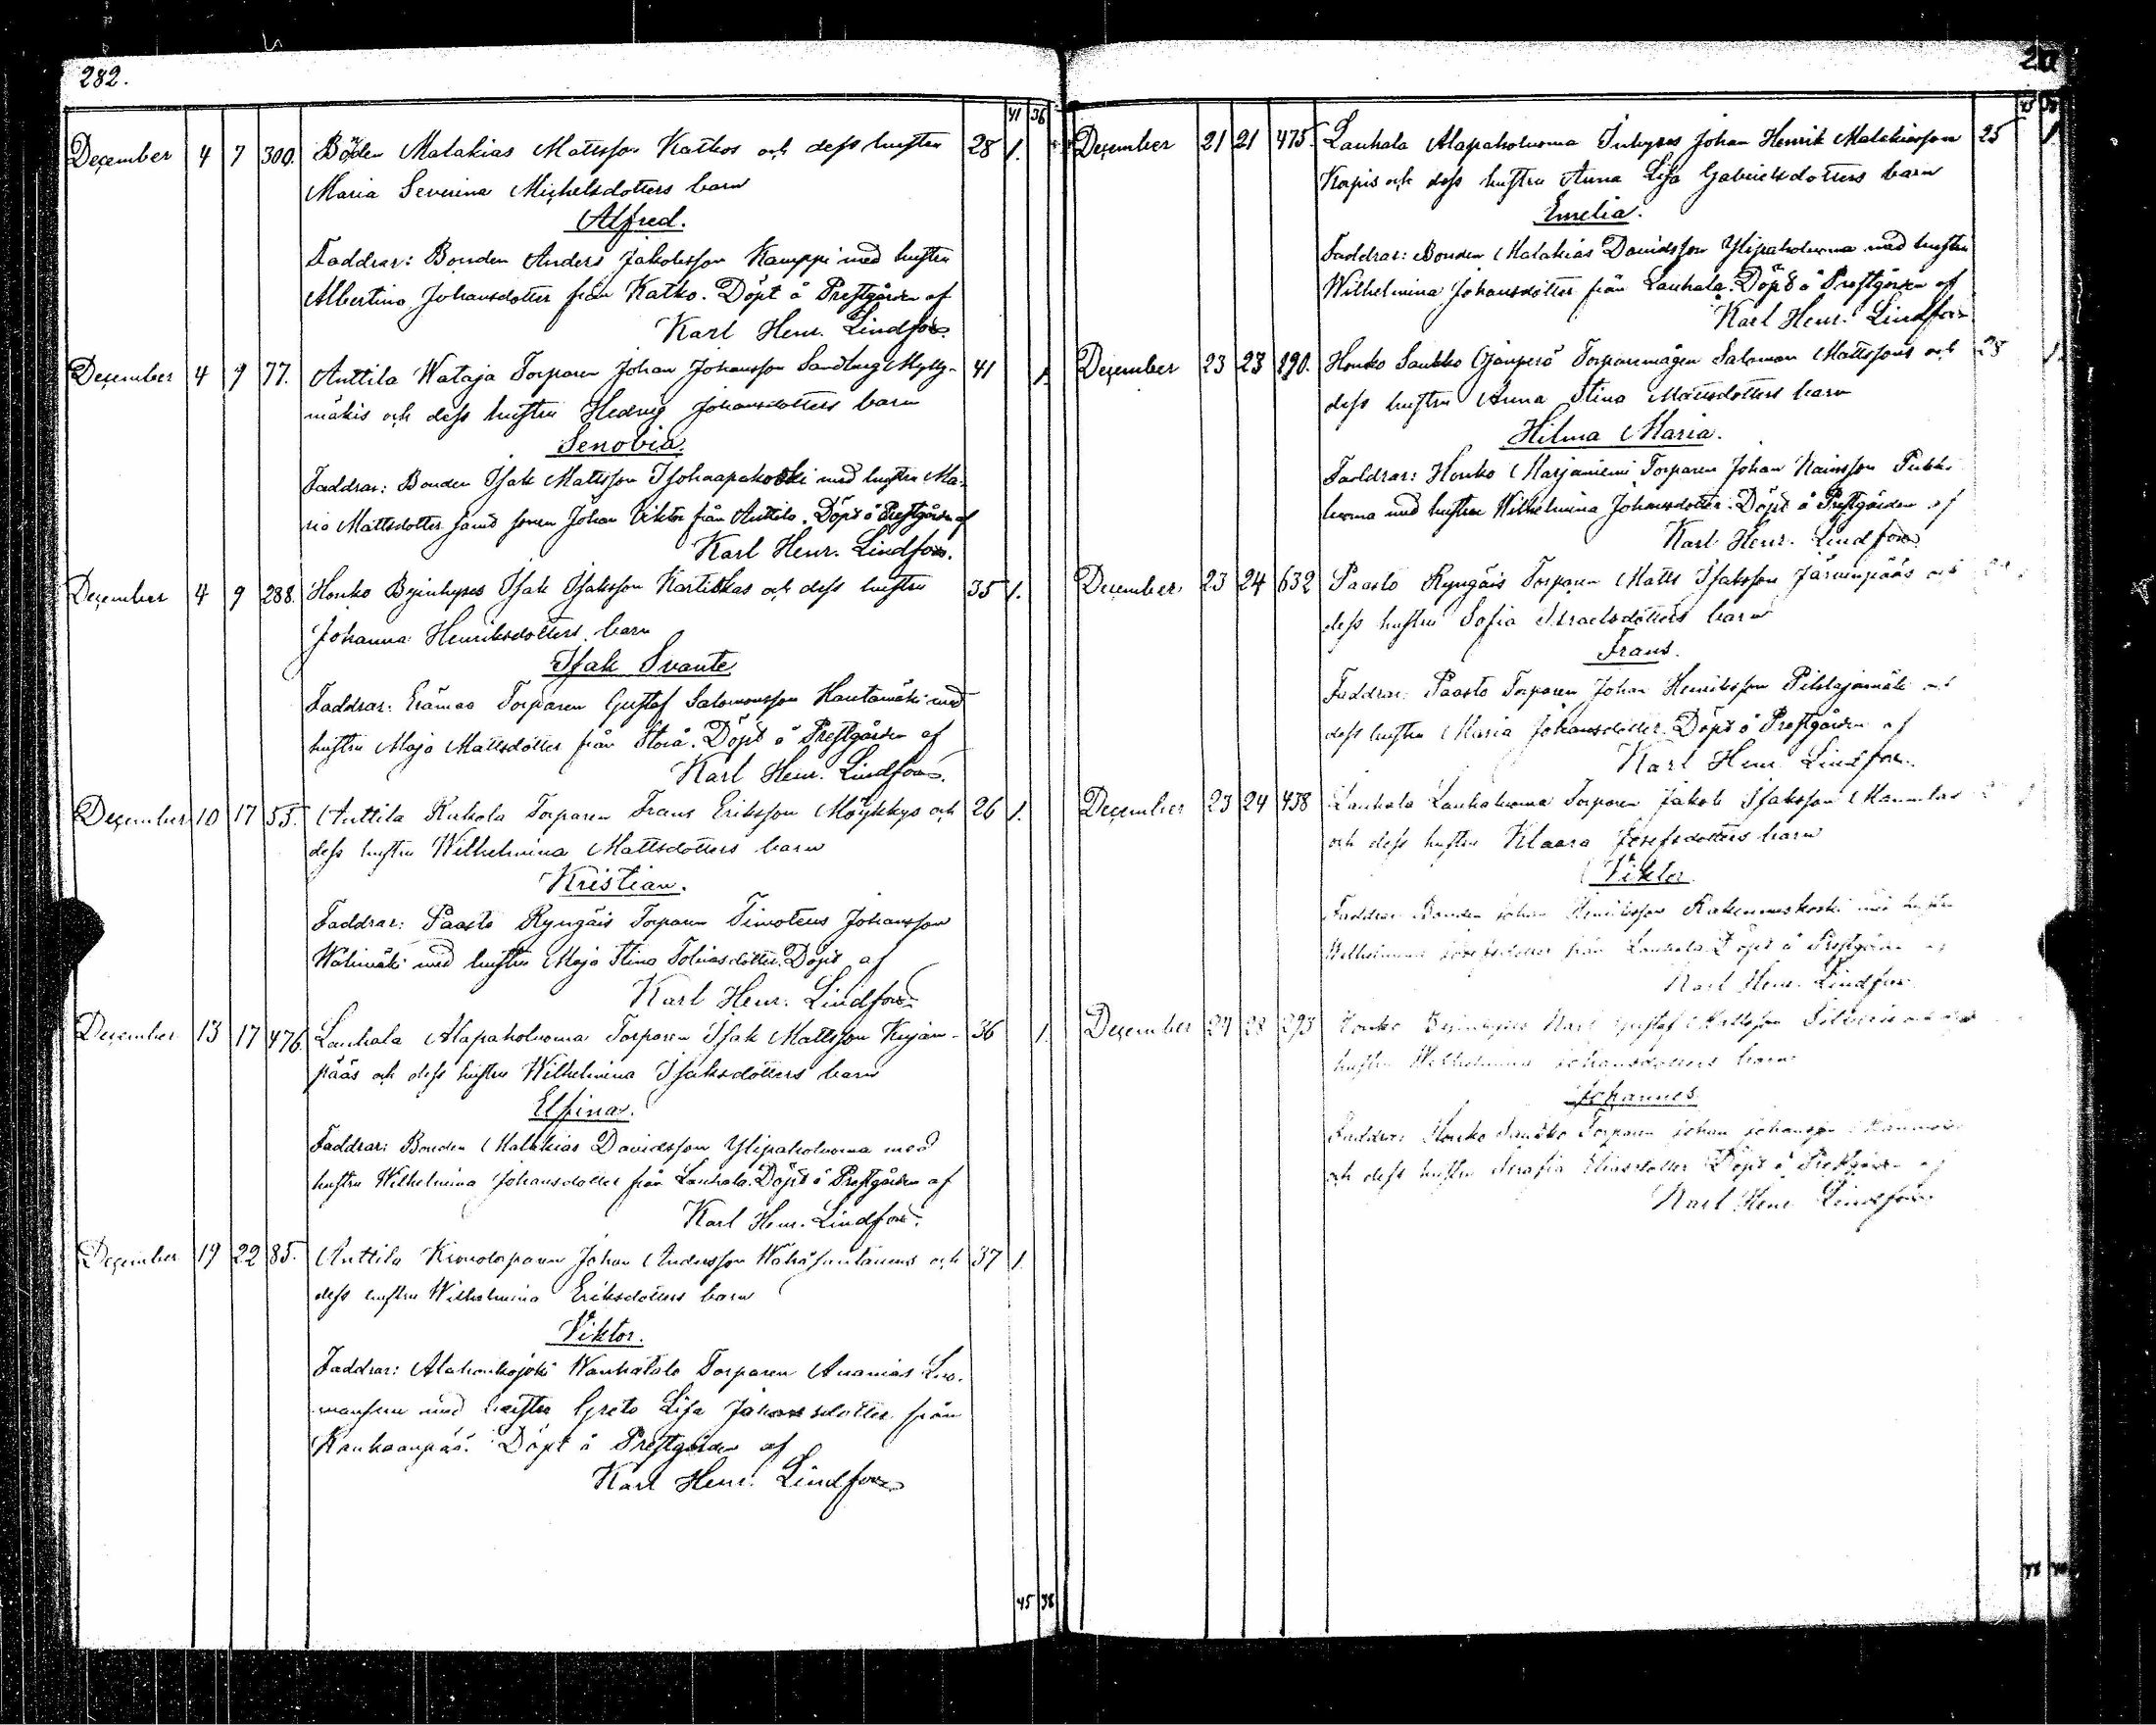 282.
41 36
December 4 7 300. Bonden Malakias Mattsson Katkos och dess hustru 28 1.
Maria Severina Michelsdotters barn
Alfred.
Faddrar: Bonden Anders Jakobsson Kamppi med hustru
Albertina Johansdotter från Katko. Döpt å Prestgården af
Karl Henr. Lindfors.
December 4 9 77. Anttila Wataja Torparen Johan Johansson Sandberg Mylly- 41 1.
mäkis och dess hustru Hedvig Johansdotters barn
Senobia.
Faddrar: Bonden Isak Mattsson Isohaapakoski med hustru Ma-
ria Mattsdotter samt sonen Johan Viktor från Anttila. Döpt å Prestgården af
Karl Henr. Lindfors.
December 4 9 288. Honko Byinhyses Isak Isaksson Kartiskas och dess hustru 35 1.
Johanna Henriksdotters barn
Isak Svante
Faddrar: Erämaa Torparen Gustaf Salomonsson Hautamäki med
hustru Maja Mattsdotter från Storå. Döpt å Prestgården af
Karl Henr. Lindfors.
December 10 17 55. Anttila Ruhola Torparen Frans Eriksson Möykkys och 26 1.
dess hustru Wilhelmina Mattsdotters barn
Kristian.
Faddrar: Paasto Ryngäis Torparen Timoteus Johansson
Wälimäki med hustru Maja Stina Tobiasdotter. Döpt af
Karl Henr. Lindfors.
December 13 17 476. Lauhala Alapaholuoma Torparen Isak Mattsson Kujan- 36 1.
pääs och dess hustru Wilhelmina Isaksdotters barn
Elfina.
Faddrar: Bonden Malakias Davidsson Ylipaholuoma med
hustru Wilhelmina Johansdotter från Lauhala. Döpt å Prestgården af
Karl Henr. Lindfors.
December 19 22 85. Anttila Kronotorparen Johan Andersson Wähäsantanens och 37 1.
dess hustru Wilhelmina Eriksdotters barn
Viktor.
Faddrar: Alahonkojoki Wanhatalo Torparen Ananias
med hustru Greta Lisa Johansdotter från
Kankaanpää. Döpt å Prestgården af
Karl Henr. Lindfors
45 38
December 21 21 475. Lauhala Alapaholuoma Inhyses Johan Henrik Malakiasson 25 1.
Korpis och dess hustru Anna Lisa Gabrielsdotters barn
Emelia.
Faddrar: Bonden Malakias Davidsson Ylipaholuoma med hustru
Wilhelmina Johansdotter från Lauhala. Döpt å Prestgården af
Karl Henr. Lindfors
December 23 23 290. Honko Sautko Torparemågen Salomon Mattssons och 28 1.
dess hustru Anna Stina Mattsdotters barn
Hilma Maria.
Faddrar: Honko Marjaniemi Torparen Johan
luoma med hustru Wilhelmina Johansdotter. Döpt å Prestgården af
Karl Henr. Lindfors
December 23 24 632 Paasto Ryngäis Torparen Matts Isaksson Järvenpääs och
dess hustru Sofia Israelsdotters barn
Frans.
Faddrar: Paasto Torparen Johan Henriksson Pihlajamäki och
dess hustru Maria Johansdotter. Döpt å Prestgården af
Karl Henr. Lindfors.
December 23 24 438 Lauhala Lauhaluoma Torparen Jakob Isaksson
och dess hustru Klaara Josefsdotters barn
Viktor.
Faddrar: Bonden Johan Henriksson Rakennuskoski med hustru
Wilhelmina Josefsdotter från Lauhala. Döpt å Prestgården af
Karl Henr. Lindfors.
December 27 28 293 Honko Karl Gustaf Mattsson
hustru Wilhelmina Johansdotters barn
Johannes
Faddrar: Honko Torparen Johan Johansson
och dess hustru Serafia Eliasdotter Döpt å Prestgården af
Karl Henr. Lindfors.